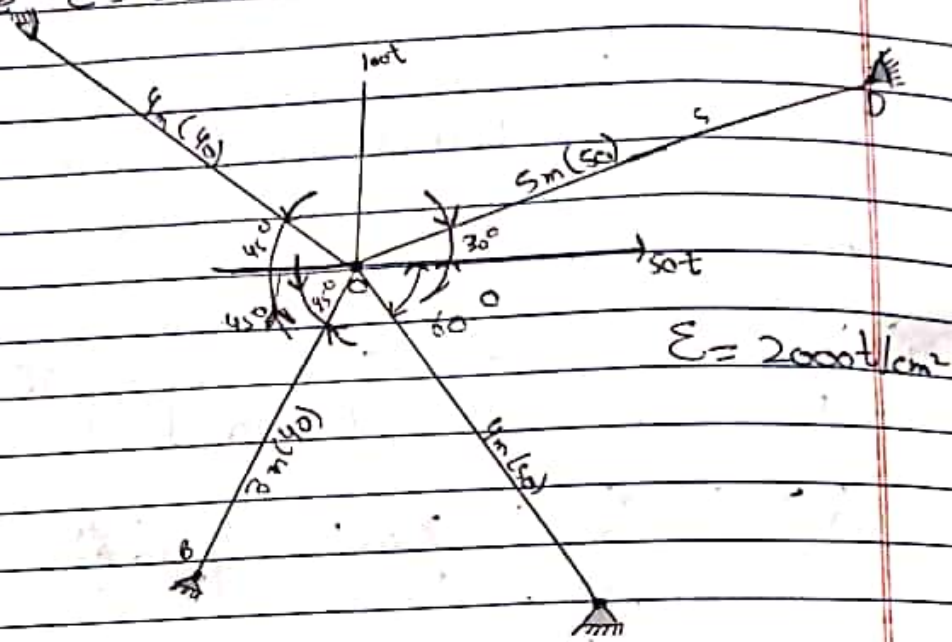 100t
4m(40)
5
D
5m(50)
45°
30°
50t
C
45°
45°
60°
E = 2000t/cm²
3m(40)
4m(50)
B